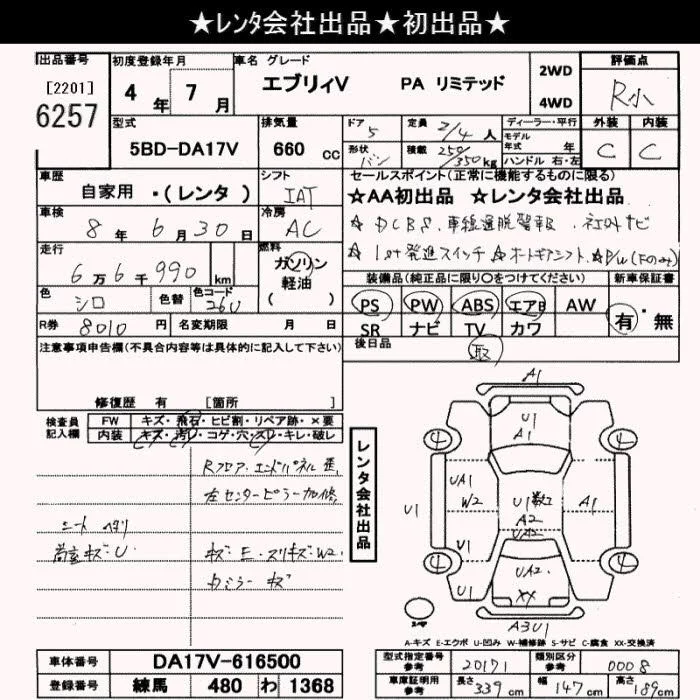 ★レンタ会社出品★初出品★
出品番号
[2201]
6257
初度登録年月
4 年 7 月
車名 グレード
エブリィV PA リミテッド
2WD
4WD
評価点
R小
外装 内装
C C
型式
5BD-DA17V
排気量
660 cc
ドア 5
形状 バン
定員 2/4 人
積載 250/350 kg
ディーラー・平行
モデル
年式 年
ハンドル 右・左
車歴
自家用 ・(レンタ)
シフト
IAT
セールスポイント(正常に機能するものに限る)
☆AA初出品 ☆レンタ会社出品
☆DCBS、車線逸脱警報、社外ナビ
☆1st発進スイッチ ☆オートギアシフト、☆P/W(Fのみ)
車検
8 年 6 月 30 日
冷房
AC
走行
6万6千990 km
燃料
ガソリン
軽油
( )
装備品(純正品に限り○をつけてください)
新車保証書
PS PW ABS エアB AW
SR ナビ TV カワ
有・無
色
シロ
色替
色コード
26U
R券 8010 円
名変期限 月 日
後日品
取
注意事項申告欄(不具合内容等は具体的に記入して下さい)
修復歴 有 [箇所 ]
検査員
記入欄
FW キズ・飛石・ヒビ割・リペア跡・×要
内装 キズ・汚レ・コゲ・穴・スレ・キレ・破レ
Rフロア、エンドパネル 歪、
左センターピラー 加修、
シート ヘタリ
荷室 キズ・U
キズ・E・スリキズ・W2、
Dミラー キズ
レンタ会社出品
A1
U1
A1
4
4
UA1
W2
U1
U1
A2
UA2
A1
U1
4
4
U1
UA2
XX
U1
A3U1
A-キズ E-エクボ U-凹み W-補修跡 S-サビ C-腐食 XX-交換済
車体番号 DA17V-616500
登録番号 練馬 480 わ 1368
型式指定番号
参考
20171
類別区分
参考
0008
車庫証明用
参考
長さ 339 cm
幅 147 cm
高さ 189 cm